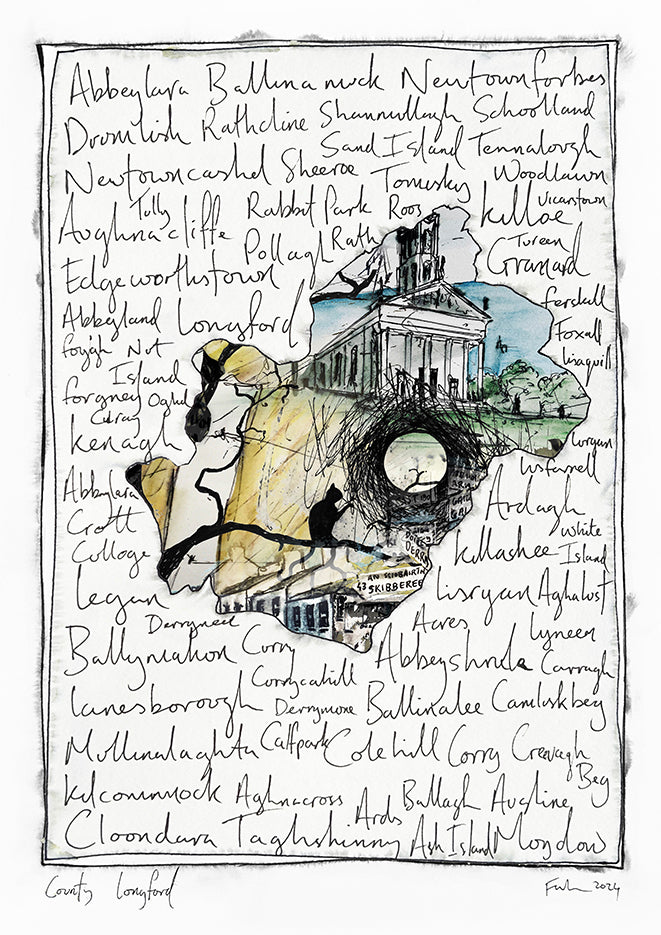 Abbeylara Ballinamuck Newtownforbes
Dromlish Rathcline Shannullagh Schoolland
Sand Island Tennalough
Newtowncashel Sheeroe Tomisky Woodlawn
Tully Rabbit Park Roos Killoe Vicarstown
Aughnacliffe Pollagh Rath Tureen
Edgeworthstown Granard
Ferskill
Abbeyland Longford Foxall
Foygh Nut Lisaquill
Island
Forgney Oghil
Curray
Kenagh Lurgan
Lisfarrell
Abbeylara Ardagh
Crott White
College Killashee Island
AN SCIOBAIRÍN
43 SKIBBEREE
Legan Lisryan Aghalust
Derryneel Acres Lyneen
Ballymahon Curry Abbeyshrule Carragh
Currycahill
Lanesborough Derrymore Ballinalee Camliskbeg
Mullinalaghta Calfpark Colehill Corry Creevagh
Beg
Kilcommock Aghnacross Ards Ballagh Aughine
Cloondara Taghshinny Ash Island Moydow
County Longford 2024